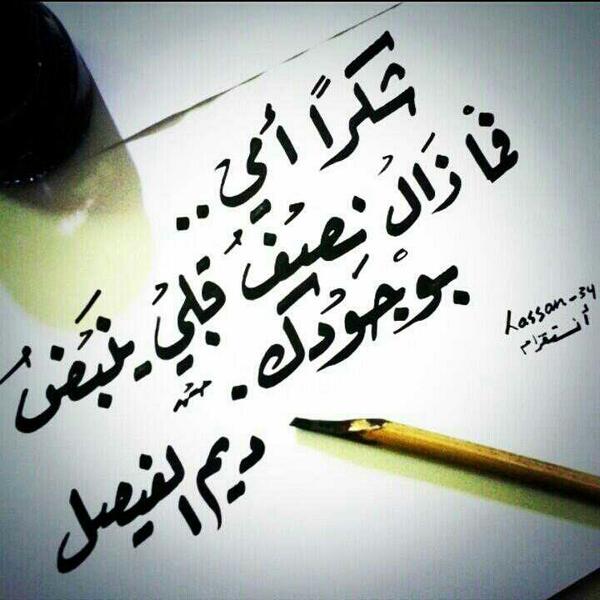 شكراً أمي..
فما زَالُ نِصْفُ قلبيُ ينبَضُ
بوْجَوُدك.
ديم الفيصل
hassan-34
أنستقرام